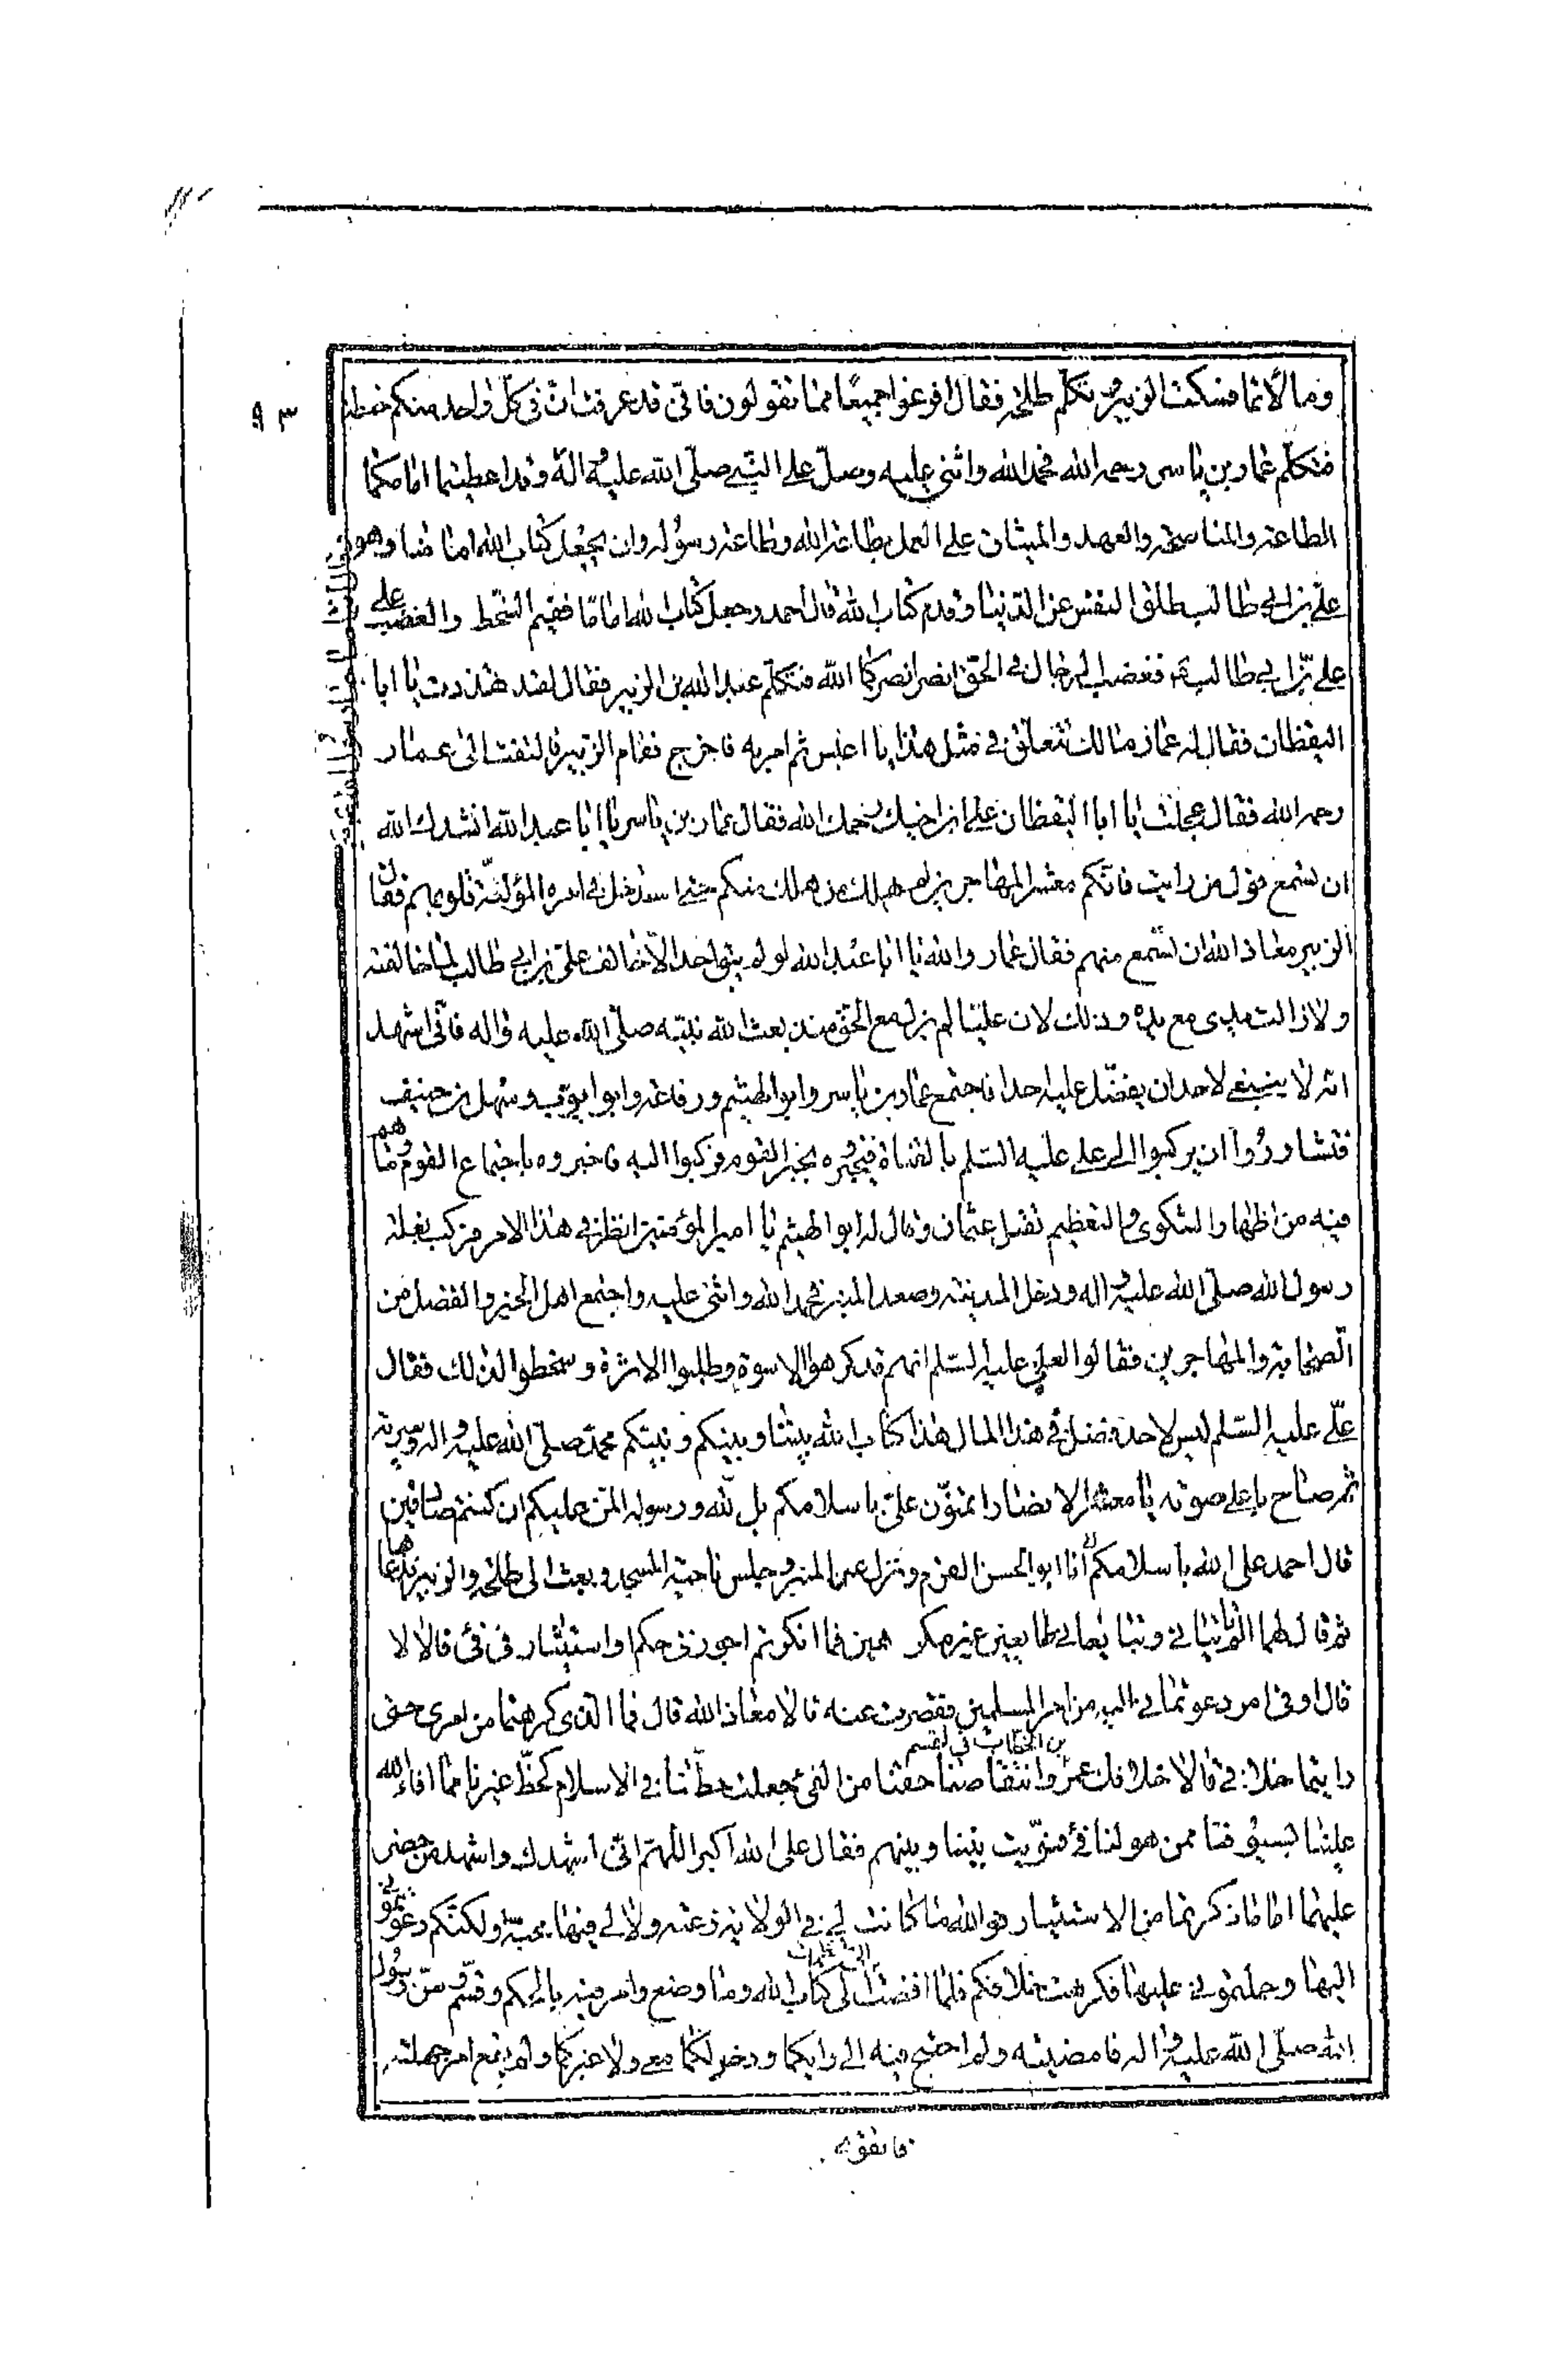 ومالأتما فسكت الزبير وتكلم طلحة فقال افرغوا جميعًا مما تقولون فانى قد عرفت ان فى كل واحد منكم خطبة
فتكلم عمار بن ياسر رحمه الله فحمد الله واثنى عليه وصلى على النبي صلّى الله عليه وآله وقد اعطيتما امامكما
الطاعة والمناصحة والعهد والميثاق على العمل بطاعة الله وطاعة رسوله وان يجعل كتاب الله امامنا وهو
علي بن ابي طالب طلق النفس عن الدنيا وقدم كتاب الله قال احمد وجعل كتاب الله اماما ففيم السخط والغضب على
علي بن ابي طالب فغضب الرجال في الحق انصرا نصركما الله فتكلم عبد الله بن الزبير فقال لقد هذرت يا ابا
اليقظان فقال له عمار مالك تتعلق في مثل هذا يا اعبس ثم امر به فاخرج فقام الزبير والتفت الى عمار
رحمه الله فقال عجلت يا ابا اليقظان على ابن اخيك رحمك الله فقال عمار بن ياسر يا ابا عبد الله انشدك الله
ان تسمع قول من رايت فانكم معشر المهاجرين لم يهلك من هلك منكم حتى استدخل في امره المؤلفة قلوبهم فقال
الزبير معاذ الله ان نسمع منهم فقال عمار والله يا ابا عبد الله لو لم يبق احد الا خالف علي بن ابي طالب لما خالفته
ولا زالت يدى مع يده وذلك لان عليّا لم يزل مع الحق منذ بعث الله نبيّه صلّى الله عليه واله فانّى اشهد
انه لا ينبغي لاحد ان يفضّل عليه احدا فاجتمع عمار بن ياسر وابو الهيثم ورفاعة وابو ايوب وسهل بن حنيف
فتشاوروا ان يركبوا الى علي عليه السّلم بالقناة فيخبروه بخبر القوم فركبوا اليه فاخبروه باجتماع القوم وما هم
فيه من اظهار الشكوى والتعظيم لقتل عثمان وقال له ابو الهيثم يا امير المؤمنين انظر في هذا الامر فركب بغلة
رسول الله صلّى الله عليه واله ودخل المدينة وصعد المنبر فحمد الله واثنى عليه واجتمع اهل الخير والفضل من
الصحابة والمهاجرين فقالوا لعلي عليه السّلم انهم قد كرهوا الاسوة وطلبوا الاثرة وسخطوا لذلك فقال
علي عليه السّلم ليس لاحد فضل في هذا المال هذا كتاب الله بيننا وبينكم ونبيكم محمد صلّى الله عليه واله وسيرته
ثم صاح باعلى صوته يا معشر الانصار اتمنون عليّ باسلامكم بل لله ورسوله المن عليكم ان كنتم صادقين
قال احمد على الله باسلامكم انا ابو الحسن القرم ونزل عن المنبر وجلس ناحية المسجد وبعث الى طلحة والزبير فدعاهما
ثم قال لهما الم تاتياني وتبايعاني طايعين غير مكرهين فما انكرتم اجور في حكم او استيثار في فئ قالا لا
قال او في امر دعوتماني اليه من امر المسلمين فقصرت عنه قالا معاذ الله قال فما الذى كرهتما من امرى حتى
رايتما خلافي قالا خلافك عمر بن الخطاب في القسم وانتقاصنا حقنا من الفئ جعلت حظّنا في الاسلام كحظّ غيرنا مما افاء الله
علينا بسيوفنا ممن هو لنا فئ فسوّيت بيننا وبينهم فقال على الله اكبر اللهم انى اشهدك واشهد من حضر
عليهما اما ما ذكرتما من الاستيثار فوالله ما كانت لي في الولاية رغبة ولا لي فيها محبة ولكنكم دعوتموني
اليها وحملتموني عليها فكرهت خلافكم فلما افضت الى كتاب الله وما وضع وامر فيه بالحكم وقسّم وسنّ رسول
الله صلّى الله عليه واله فامضيته ولم احتج فيه الى رايكما ودخولكما معي ولا غيركما ولم يقع امر جهلته
فاتقوه
٩٣